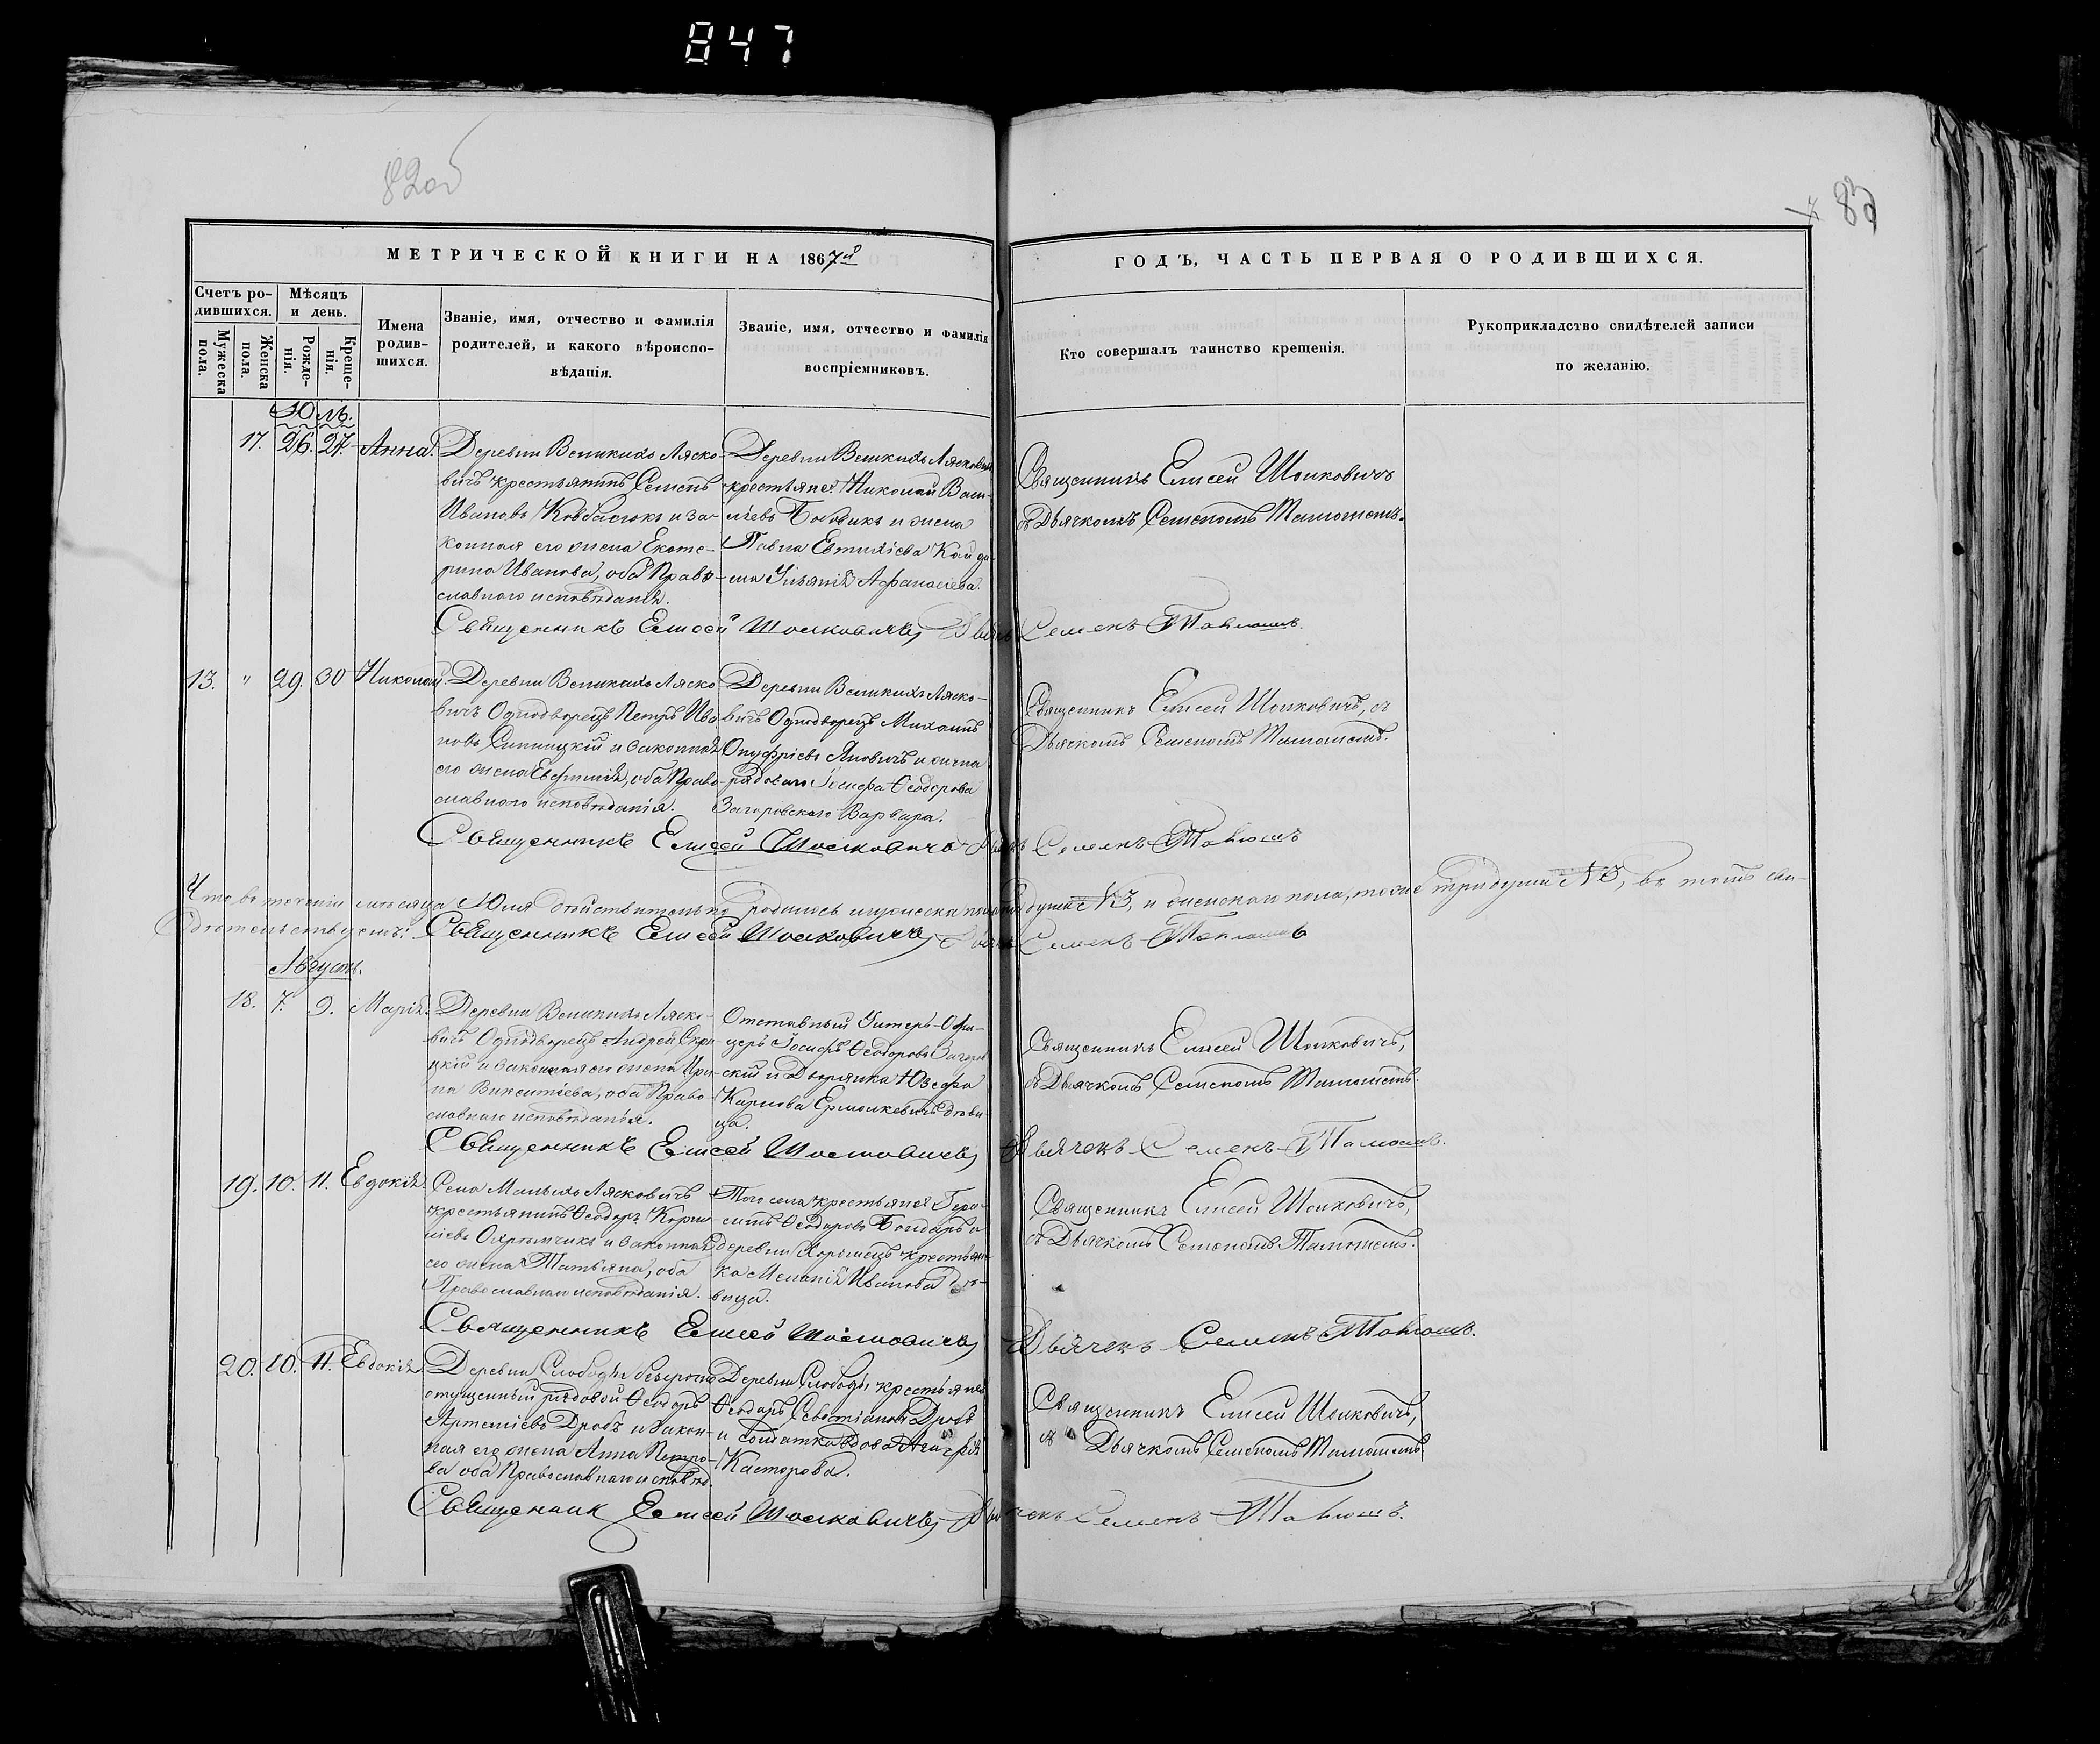 847
82об
83
МЕТРИЧЕСКОЙ КНИГИ НА 1867й
ГОДЪ, ЧАСТЬ ПЕРВАЯ О РОДИВШИХСЯ.
Счетъ ро-
дившихся.
Мужеска
пола.
Женска
пола.
Мѣсяцъ
и день.
Рожде-
нія.
Креще-
нія.
Имена
родив-
шихся.
Званіе, имя, отчество и фамилія
родителей, и какого вѣроиспо-
вѣданія.
Званіе, имя, отчество и фамилія
воспріемниковъ.
Кто совершалъ таинство крещенія.
Рукоприкладство свидѣтелей записи
по желанію.
Юль.
17. 26. 27. Анна.
Деревни Великихъ Ляско-
вичъ крестьянинъ Семенъ
Ивановъ Ковбасюкъ и за-
конная его жена Екате-
рина Ивановна, оба Право-
славнаго исповѣданія.
Деревни Великихъ Ляскович
крестьяне: Николай Васи-
льевъ Бобрикъ и жена
Павла Евтихіева
Ульянія Афанасіева.
Священникъ Елисей Шолковичъ
съ Дьячкомъ Семеномъ
Священникъ Елисей Шолковичъ, Дьячекъ Семенъ
13. " 29. 30 Николай.
Деревни Великихъ Ляско-
вичъ Однодворецъ Петръ Ива-
новъ и законная
его жена Евфимія, оба Право-
славнаго исповѣданія.
Деревни Великихъ Ляско-
вичъ Однодворецъ Михаилъ
Онуфріевъ Яновичъ и жена
рядоваго Іосифа Ѳеодорова
Загоровскаго Варвара.
Священникъ Елисей Шолковичъ, съ
Дьячкомъ Семеномъ
Священникъ Елисей Шолковичъ Дьячекъ Семенъ
Что въ теченіи мѣсяца Юля дѣйствительно родилось мужеска пола души №3, и женскаго пола, тоже три души №3, въ томъ сви-
дѣтельствуемъ: Священникъ Елисей Шолковичъ, Дьячекъ Семенъ
Августъ.
18. 7. 9. Марія.
Деревни Великихъ Ляско-
вичъ Однодворецъ Андрей
и законная его жена Ири-
на Викентіева, оба Право-
славнаго исповѣданія.
Отставный Унтеръ-Офи-
церъ Іосифъ Ѳеодоровъ Загоров
скій и Дворянка Юзефа
Карлова Ермолкевичъ дѣви-
ца.
Священникъ Елисей Шолковичъ,
съ Дьячкомъ Семеномъ
Священникъ Елисей Шолковичъ, Дьячекъ Семенъ
19. 10. 11. Евдокія.
Села Малыхъ Лясковичъ
крестьянинъ Ѳеодоръ Корни-
ліевъ Охримчикъ и законная
его жена Татьяна, оба
Православнаго исповѣданія.
Того села крестьяне: Гера-
симъ Ѳеодоровъ Бондарь и
деревни крестьян
ка Меланія Иванова дѣ-
вица.
Священникъ Елисей Шолковичъ,
съ Дьячкомъ Семеномъ
Священникъ Елисей Шолковичъ, Дьячекъ Семенъ
20. 10. 11. Евдокія.
Деревни Слободы безсрочно
отпущенный рядовой Ѳеодоръ
Артеміевъ Дробъ и закон-
ная его жена Анна Петро-
ва оба Православнаго исповѣд.
Деревни Слободы крестьяне
Ѳеодоръ Севастіановъ Дробъ
и солдатка вдова Агафія
Касторова.
Священникъ Елисей Шолковичъ,
съ Дьячкомъ Семеномъ
Священник Елисей Шолковичъ, Дьячекъ Семенъ